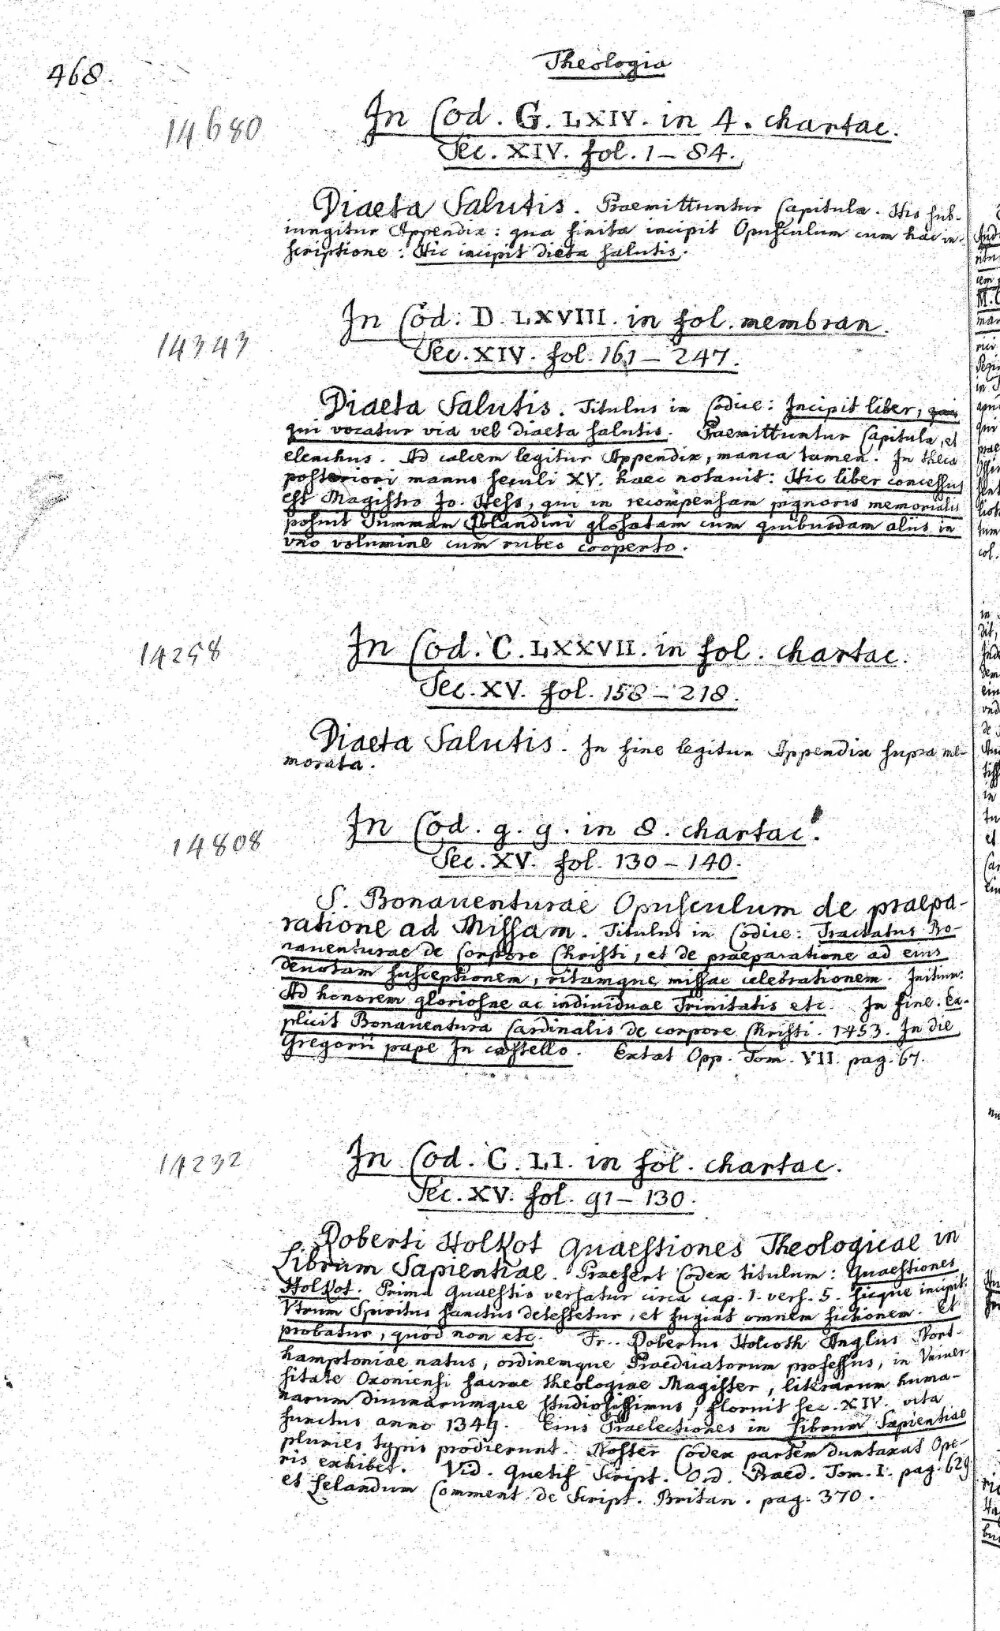 468.
Theologia
14680
In Cod. G. LXIV. in 4. chartac.
Sec. XIV. fol. 1–84.
Diaeta Salutis. Praemittuntur Capitula. His sub-
iungitur Appendix: qua finita incipit Opusculum cum hac in-
scriptione: Hic incipit dieta salutis.
14343
In Cod. D. LXVIII. in fol. membran.
Sec. XIV. fol. 161–247.
Diaeta Salutis. Titulus in Codice: Incipit liber,
qui vocatur via vel diaeta salutis. Praemittuntur Capitula, et
elenchus. Ad calcem legitur Appendix, manca tamen. In theca
posteriori manus seculi XV. haec notavit: Hic liber concessus
est Magistro Jo. Hess, qui in recompensam pignoris memorialis
posuit Summam Jblandini glosatam cum quibusdam aliis in
vno volumine cum rubeo cooperto.
14258
In Cod. C. LXXVII. in fol. chartac.
Sec. XV. fol. 158–218.
Diaeta Salutis. In fine legitur Appendix supra me-
morata.
14808
In Cod. g. g. in 8. chartac.
Sec. XV. fol. 130–140.
S. Bonauenturae Opusculum de praepa-
ratione ad Missam. Titulus in Codice: Tractatus Bo-
nauenturae de Corpore Christi, et de praeparatione ad eius
deuotam susceptionem, ritamque missae celebrationem. Initium:
Ad honorem gloriosae ac individuae Trinitatis etc. In fine. Ex-
plicit Bonauentura Cardinalis de corpore Christi. 1453. In die
Gregorii pape In castello. Extat Opp. Tom. VII. pag. 67.
14232
In Cod. C. LI. in fol. chartac.
Sec. XV. fol. 91–130.
Roberti Holkot Quaestiones Theologicae in
Librum Sapientiae. Praefert Codex titulum: Quaestiones
Holkot. Prima Quaestio versatur circa cap. 1. vers. 5. sicque incipit:
Vtrum Spiritus sanctus detestetur, et fugiat omnem fictionem. Et
probatur, quod non etc. Fr. Robertus Holcoth Anglus Nort-
hamptoniae natus, ordinemque Praedicatorum professus, in Vniuer
sitate Oxoniensi sacrae theologiae Magister, literarum huma-
narum diuinarumque studiosissimus, floruit sec. XIV. vita
functus anno 1349. Eius Praelectiones in Librum Sapientiae
pluries typis prodierunt. Noster Codex partem duntaxat Ope-
ris exhibet. Vid. Quetif Script. Ord. Praed. Tom. I. pag. 629
et Lelandum Comment. de Script. Britan. pag. 370.